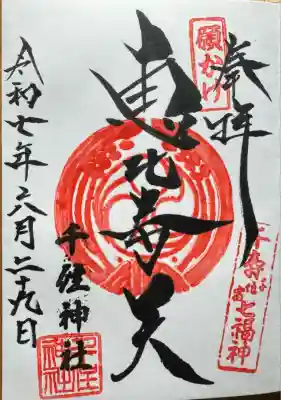 奉拝
願かけ
恵比寿天
千寿七福神
千住神社
令和七年六月二十九日